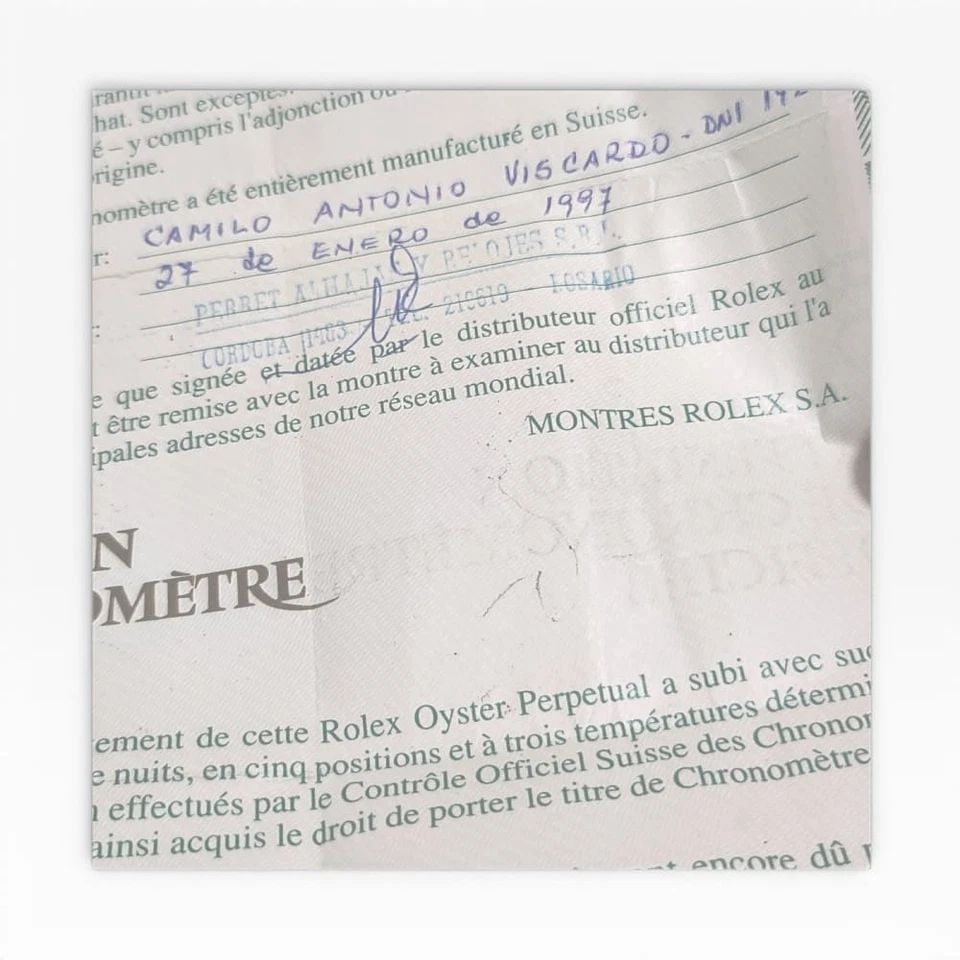 hat. Sont exceptés
é – y compris l'adjonction ou
rigine.
nomètre a été entièrement manufacturé en Suisse.
r: CAMILO ANTONIO VISCARDO - DNI
27 de ENERO de 1997
: PERRET ALHAJAS Y RELOJES S.R.L.
CORDOBA 210619 - ROSARIO
e que signée et datée par le distributeur officiel Rolex au
t être remise avec la montre à examiner au distributeur qui l'a
ipales adresses de notre réseau mondial.
MONTRES ROLEX S.A.
N
OMÈTRE
ement de cette Rolex Oyster Perpetual a subi avec suc
e nuits, en cinq positions et à trois températures détermi
n effectués par le Contrôle Officiel Suisse des Chronom
ainsi acquis le droit de porter le titre de Chronomètre
encore dû